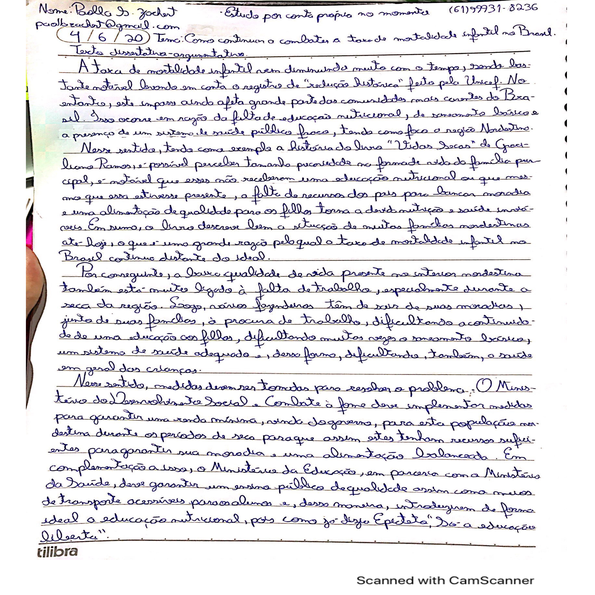 Nome: Pablo G. Zochet · Estudo por conta própria no momento (61)99931-8236
paolbzochet@gmail.com
(4/6/20) Tema: Como continuar o combater a taxa de mortalidade infantil no Brasil.
Texto dissertativo-argumentativo
A taxa de mortalidade infantil vem diminuindo muito com o tempo, sendo bas-
tante notável levando em conta o registro de "redução histórica" feito pela Unicef. No
entanto, este impasse ainda afeta grande parte das comunidades mais carentes do Bra-
sil. Isso ocorre em razão da falta de educação nutricional, de saneamento básico e
a presença de um sistema de saúde pública fraco, tendo como foco a região Nordestina.
Nesse sentido, tendo como exemplo a história do livro "Vidas Secas" de Graci-
liano Ramos, é possível perceber tamanha precariedade na forma de vida da família prin-
cipal, é notável que esses não receberam uma educação nutricional ou que mes-
mo que essa estivesse presente, a falta de recursos dos pais para bancar moradia
e uma alimentação de qualidade para os filhos torna a devida nutrição e saúde inviá-
veis. Em suma, o livro descreve bem a situação de muitas famílias nordestinas
até hoje, o que é uma grande razão pela qual a taxa de mortalidade infantil no
Brasil continua distante do ideal.
Por conseguinte, a baixa qualidade de vida presente no interior nordestino
também está muito ligada à falta de trabalho, especialmente durante a
seca da região. Logo, vários fazendeiros têm de sair de suas moradias,
junto de suas famílias, à procura de trabalho, dificultando a continuida-
de de uma educação aos filhos, dificultando muitas vezes o saneamento básico,
um sistema de saúde adequado e, dessa forma, dificultando, também, a saúde
em geral das crianças.
Nesse sentido, medidas devem ser tomadas para resolver o problema. O Minis-
tério do Desenvolvimento Social e Combate à fome deve implementar medidas
para garantir uma renda mínima, vinda do governo, para esta população nor-
destina durante os períodos de seca para que assim estes tenham recursos sufici-
entes para garantir sua moradia e uma alimentação balanceada. Em
complementação a isso, o Ministério da Educação, em parceria com o Ministério
da Saúde, deve garantir um ensino público de qualidade assim como meios
de transporte acessíveis para os alunos e, dessa maneira, introduzirem de forma
ideal a educação nutricional, pois como já dizia Epicteto, "Só a educação
liberta".
tilibra
Scanned with CamScanner